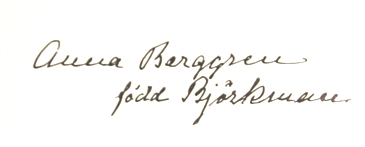 Anna Berggren
född Björkman